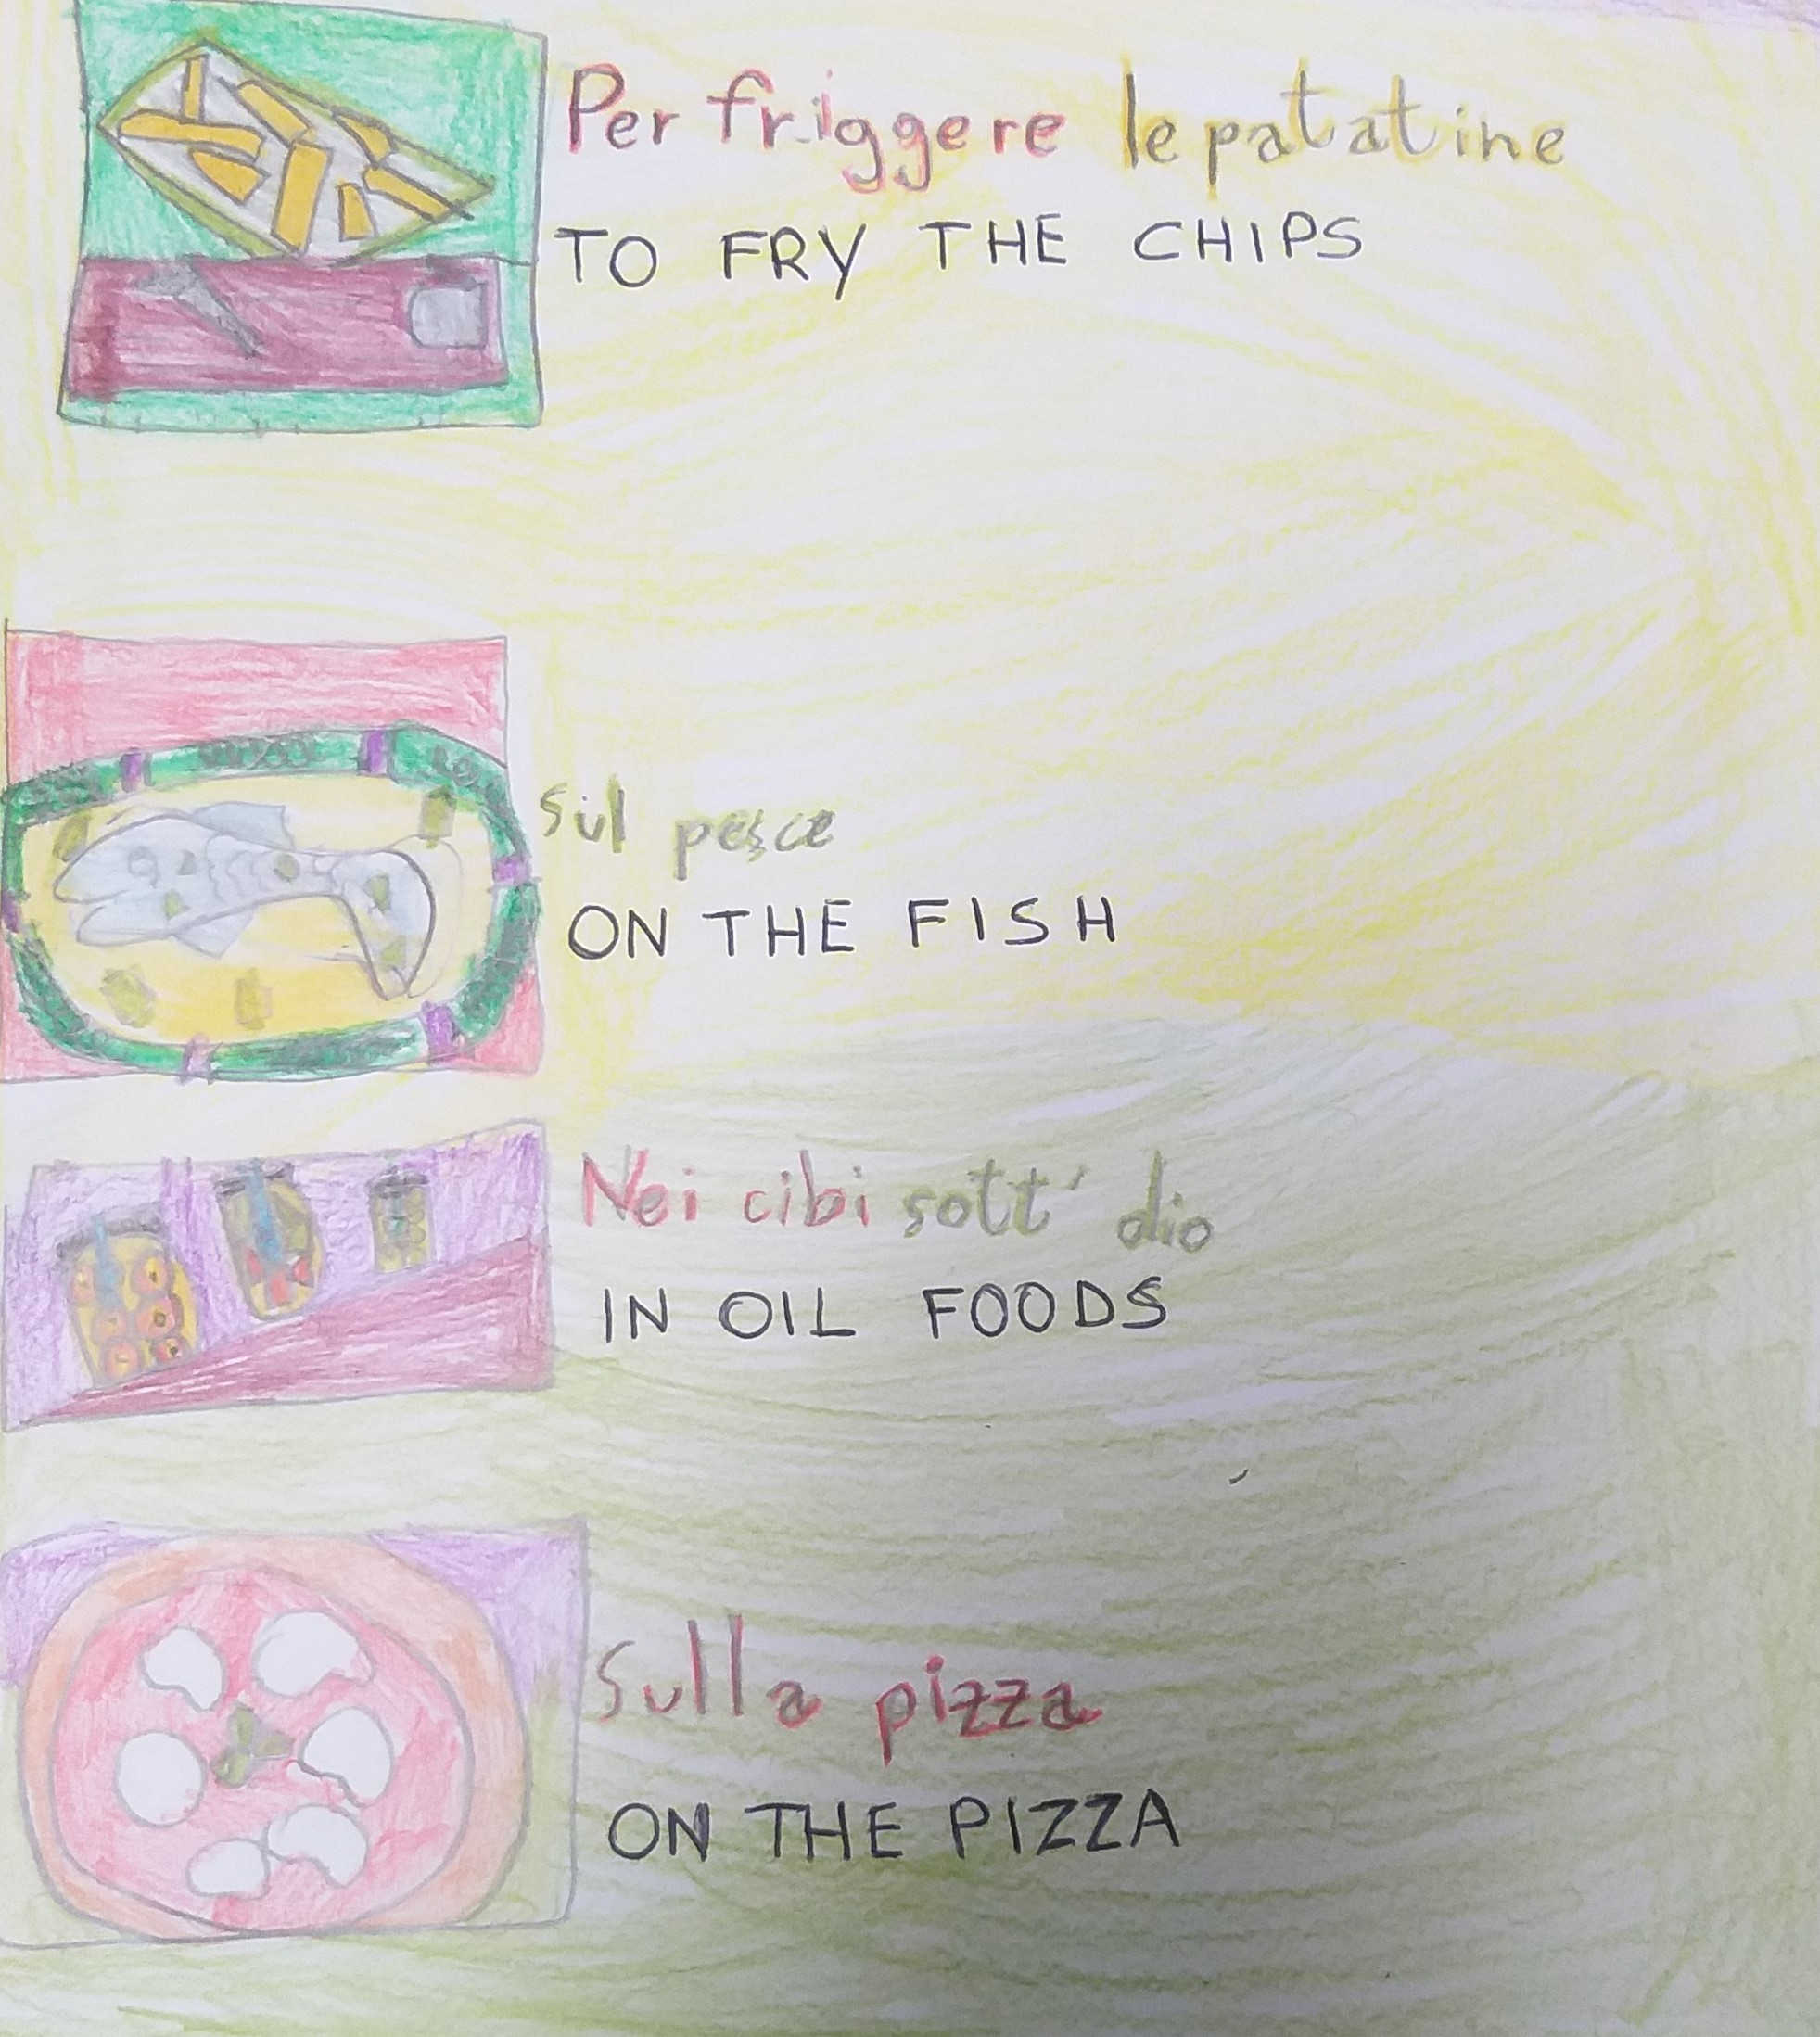 Per friggere le patatine
TO FRY THE CHIPS
Sul pesce
ON THE FISH
Nei cibi sott' olio
IN OIL FOODS
Sulla pizza
ON THE PIZZA